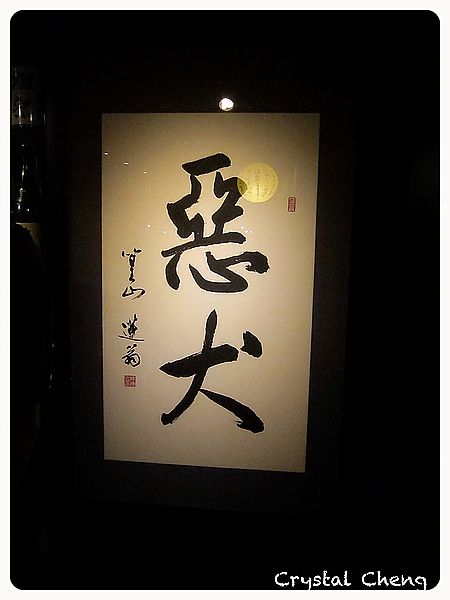 惡犬
蓮翁
Crystal Cheng